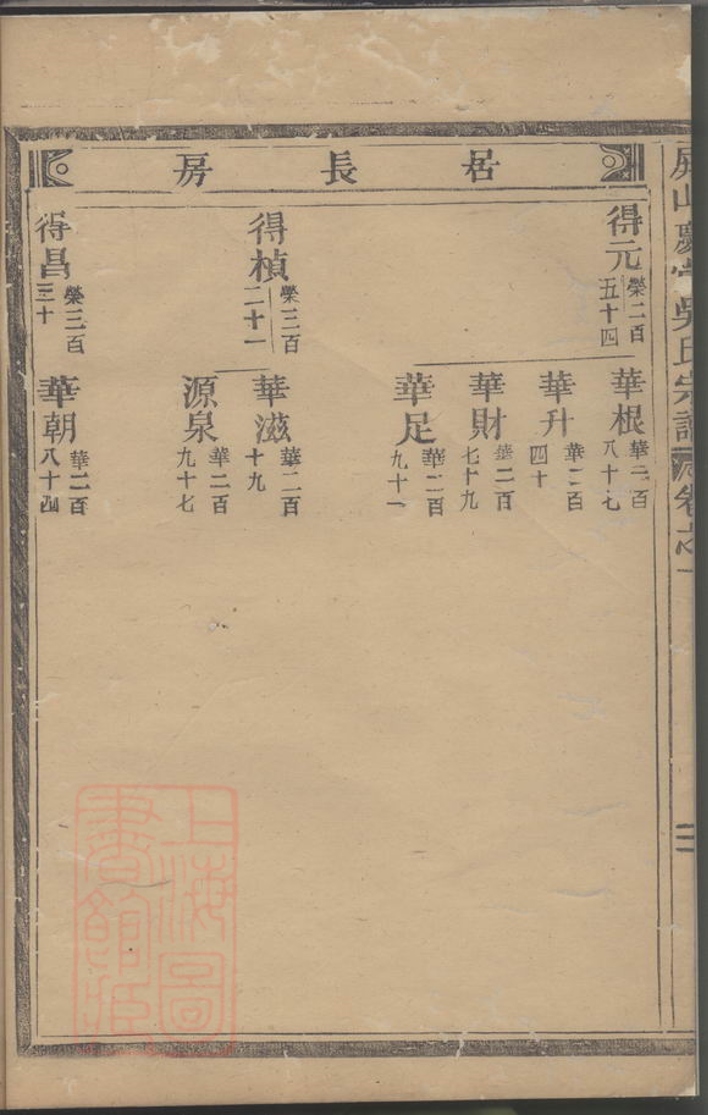 居長房
得元 榮二百五十四
華根 華二百八十七
華升 華二百四十
華財 華二百七十九
華足 華二百九十一
得楨 榮三百二十一
華滋 華二百十九
源泉 華二百九十七
得昌 榮三百三十
華朝 華二百八十四
屏山慶堂吳氏宗譜 卷之一
二
上海圖書館藏